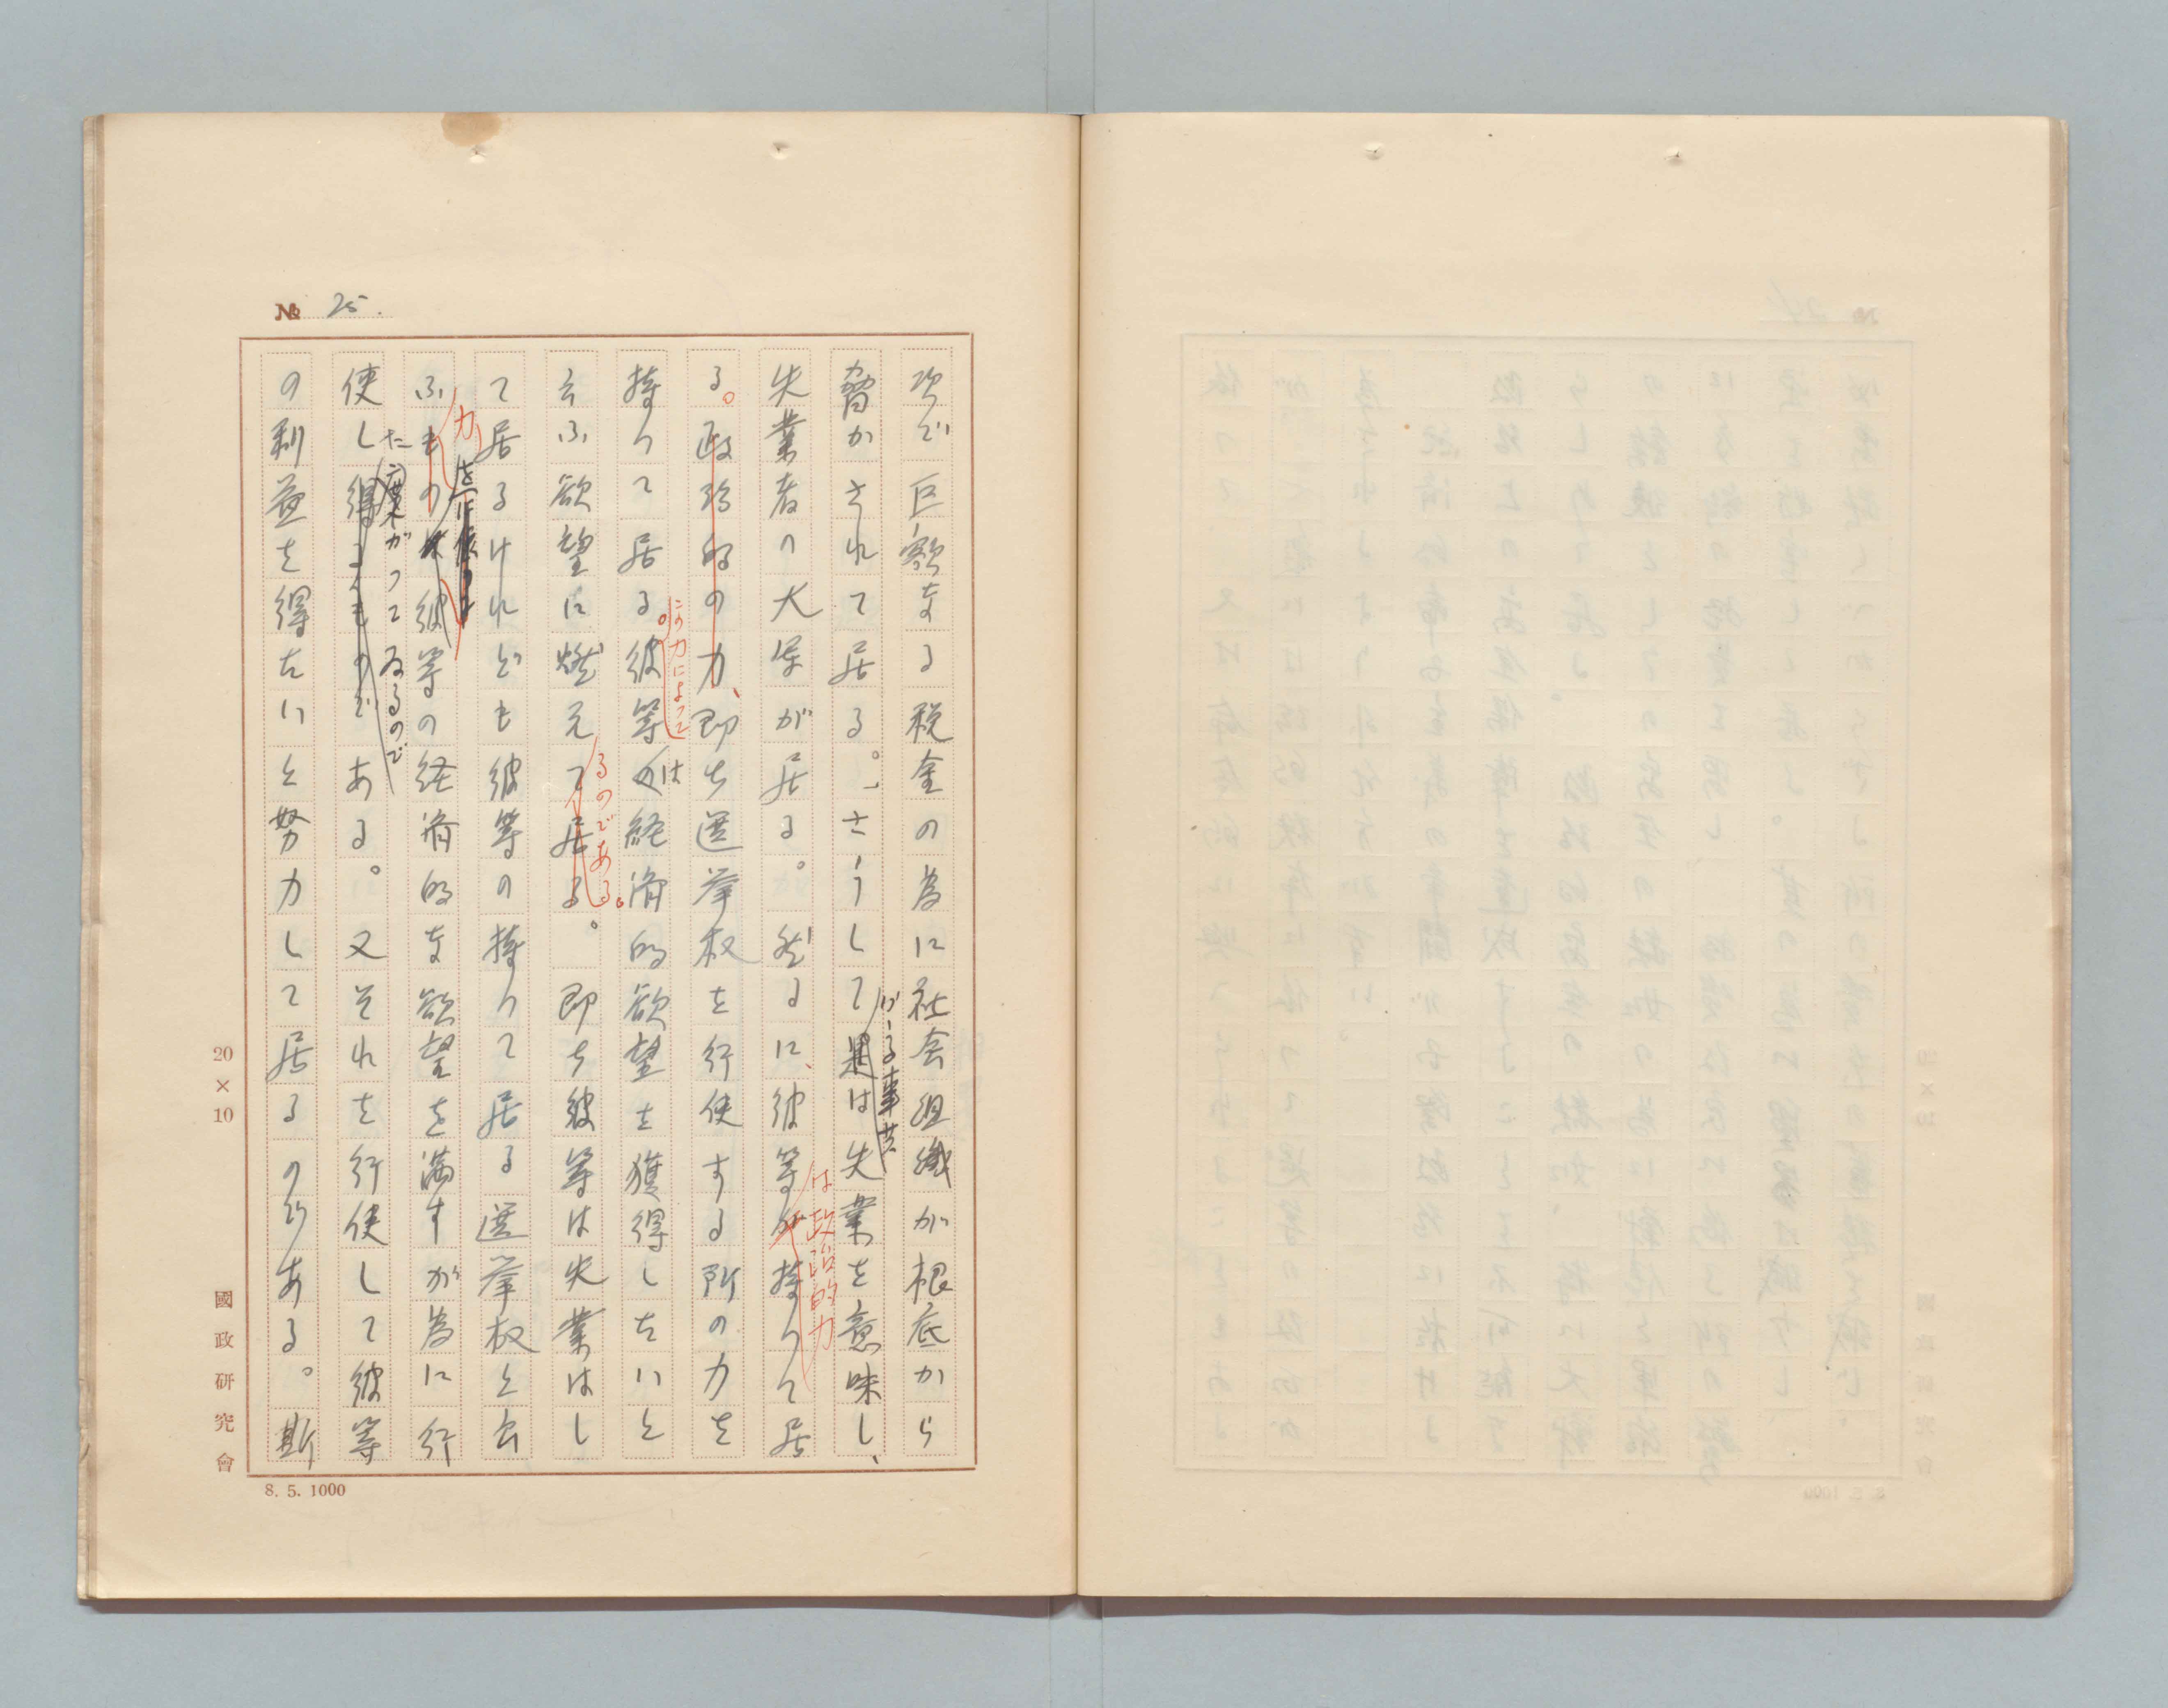 № 25.
次で巨額なる税金の為に社会組織が根底から
脅かされて居る。さうして是は失業を意味し、
かゝる事甚
失業者の大軍が居る。然るに、彼等が持つて居
は政治的力
る。政治的の力、即ち選挙权を行使する所の力を
持つて居る。彼等は経済的欲望を獲得したいと
この力によつて
云ふ欲望に燃えて居る。 即ち彼等は失業はし
るのである。
て居るけれども彼等の持つて居る選挙权と云
力
ふもの 彼等の経済的な欲望を満すが為に行
た
がつてゐるので
使し得るものである。又それを行使して彼等
の利益を得たいと努力して居るのである。斯
20×10
國政研究會
8. 5. 1000